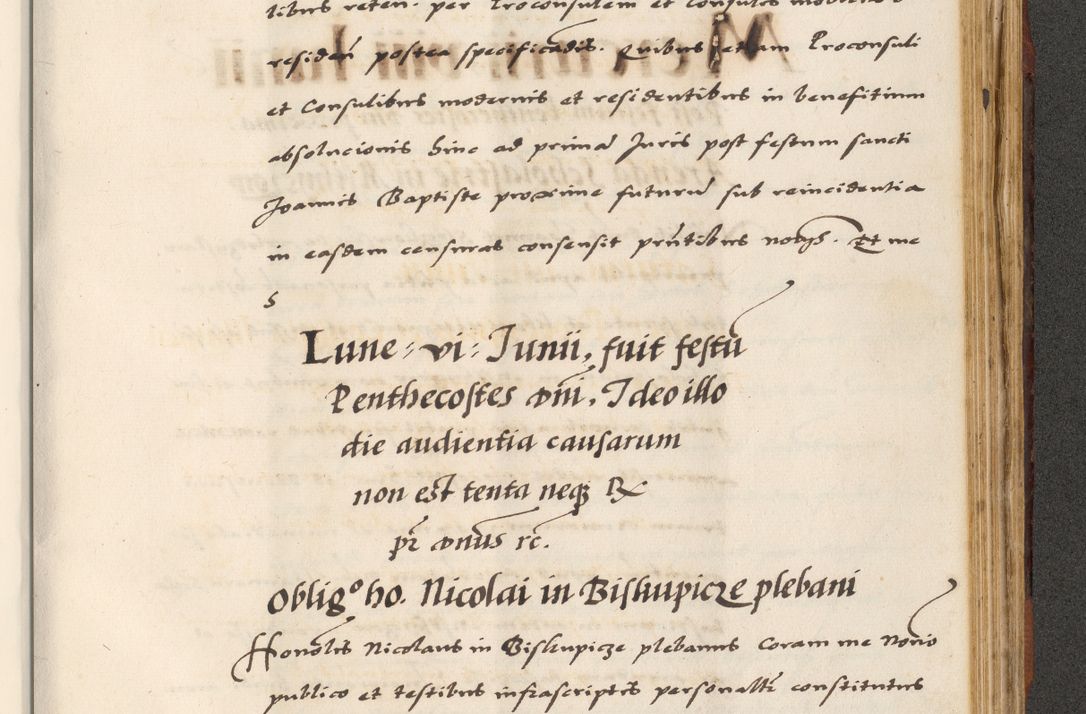 libus reten. per Proconsulem et Consules
residen̄ postea specificadis. Quibus etiam Proconsuli
et Consulibus modernis et residentibus in benefitium
absolucionis hinc ad primā Juris post festum sancti
Joannis Baptiste proxime futurū sub reincidentia
in easdem censuras consensit pn̄tibus nobis. Et me
s
Lune : vi : Junii, fuit festū
Penthecostes dn̄i, Ideo illo
die audientia causarum
non est tenta neq3 R
pr̄ dn̄us rc̄.
Obligo ho. Nicolai in Biskupicze plebani
Honolis Nicolaus in Biskupicze plebanus coram me Norio
publico et testibus infrascriptis personaltr̄ constitutus